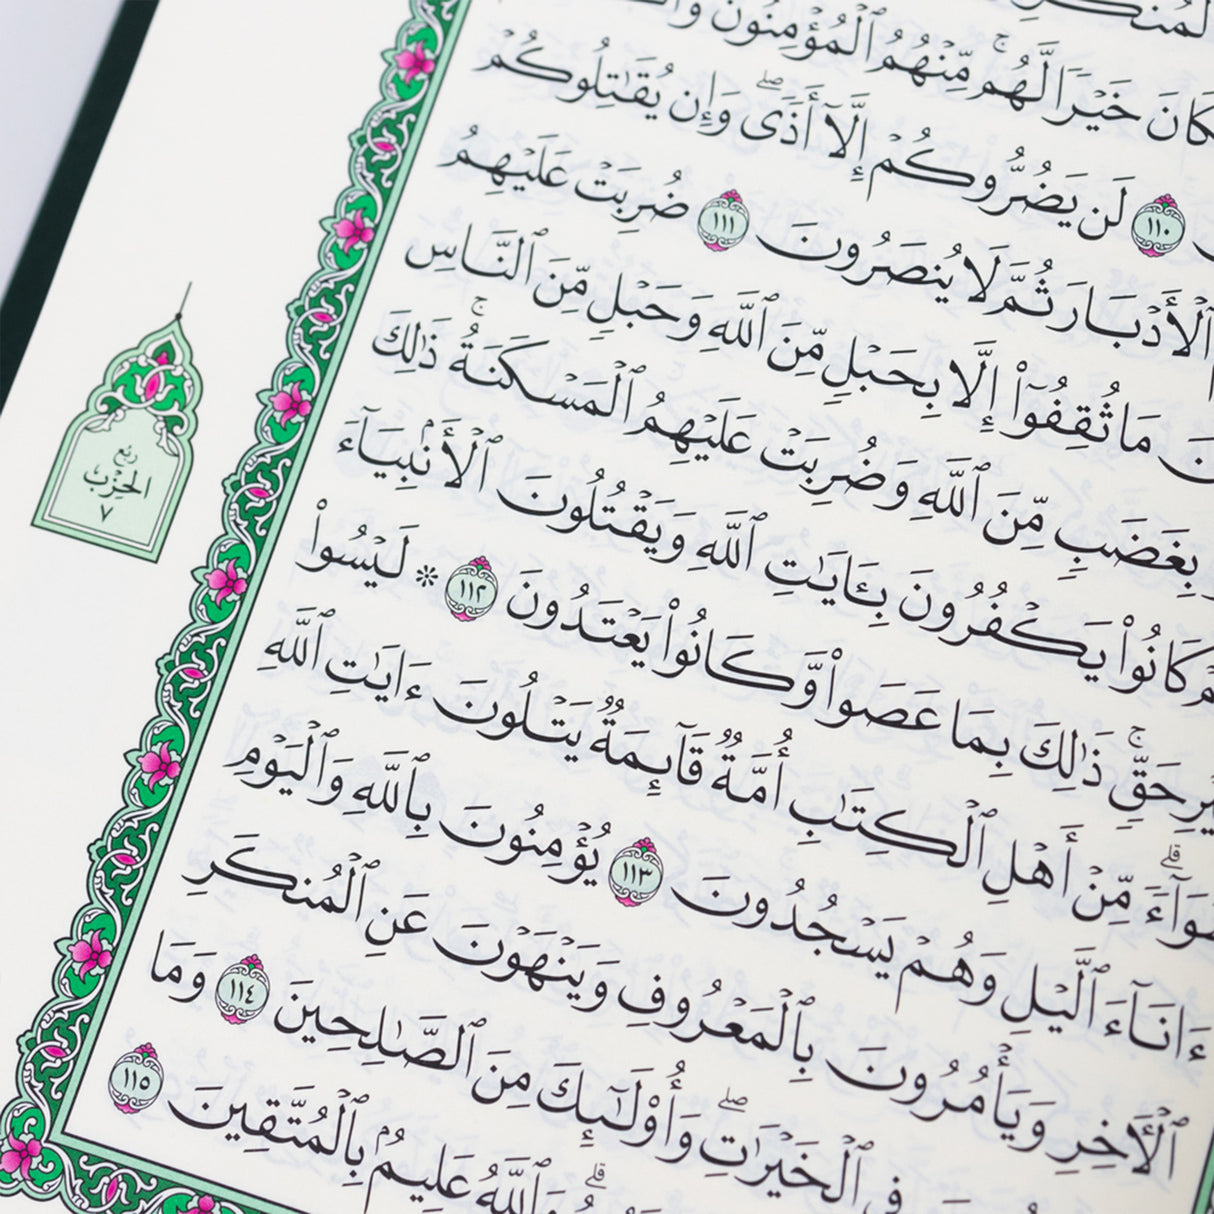 كَانَ خَيْرًا لَّهُم ۚ مِّنْهُمُ ٱلْمُؤْمِنُونَ
١١٠ لَن يَضُرُّوكُمْ إِلَّآ أَذًى ۖ وَإِن يُقَٰتِلُوكُمْ
ٱلْأَدْبَارَ ثُمَّ لَا يُنصَرُونَ ١١١ ضُرِبَتْ عَلَيْهِمُ
مَا ثُقِفُوٓا۟ إِلَّا بِحَبْلٍ مِّنَ ٱللَّهِ وَحَبْلٍ مِّنَ ٱلنَّاسِ
بِغَضَبٍ مِّنَ ٱللَّهِ وَضُرِبَتْ عَلَيْهِمُ ٱلْمَسْكَنَةُ ۚ ذَٰلِكَ
كَانُوا۟ يَكْفُرُونَ بِـَٔايَٰتِ ٱللَّهِ وَيَقْتُلُونَ ٱلْأَنۢبِيَآءَ
حَقٍّ ۚ ذَٰلِكَ بِمَا عَصَوا۟ وَّكَانُوا۟ يَعْتَدُونَ ١١٢ ۞ لَيْسُوا۟
سَوَآءً ۗ مِّنْ أَهْلِ ٱلْكِتَٰبِ أُمَّةٌ قَآئِمَةٌ يَتْلُونَ ءَايَٰتِ ٱللَّهِ
ءَانَآءَ ٱلَّيْلِ وَهُمْ يَسْجُدُونَ ١١٣ يُؤْمِنُونَ بِٱللَّهِ وَٱلْيَوْمِ
ٱلْءَاخِرِ وَيَأْمُرُونَ بِٱلْمَعْرُوفِ وَيَنْهَوْنَ عَنِ ٱلْمُنكَرِ
فِى ٱلْخَيْرَٰتِ ۖ وَأُو۟لَٰٓئِكَ مِنَ ٱلصَّٰلِحِينَ ١١٤ وَمَا
ۗ وَٱللَّهُ عَلِيمٌۢ بِٱلْمُتَّقِينَ ١١٥
ربع
الحزب
٧